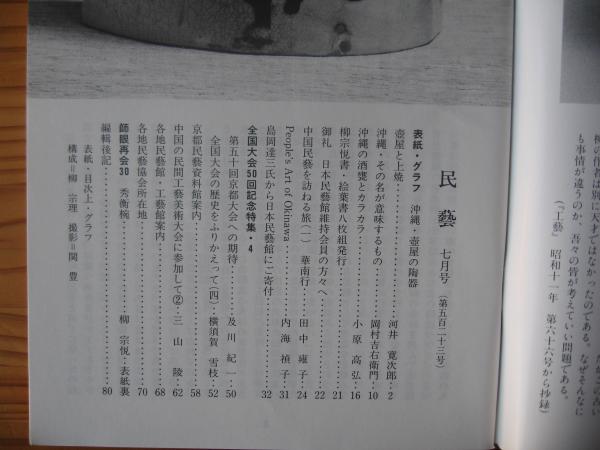 の作者は別に天才ではなかったのである。なぜそんなに
も事情が違うのか、吾々の皆が考えていい問題である。
（『工藝』 昭和十一年 第六十六号から抄録）
民藝 七月号（第五百二十三号）
表紙・グラフ 沖縄・壺屋の陶器
壺屋と上焼………河井 寛次郎・2
沖縄・その名が意味するもの………岡村吉右衛門・10
沖縄の酒甕とカラカラ………小原 高弘・16
柳宗悦書・絵葉書八枚組発行………21
御礼 日本民藝館維持会員の方々へ………22
中国民藝を訪ねる旅（一） 華南行………田中 雍子・24
People's Art of Okinawa………内海 禎子・31
島岡達三氏から日本民藝館にご寄付………32
全国大会50回記念特集・4
第五十回京都大会への期待………及川 紀一・50
全国大会の歴史をふりかえって（四）・横須賀 雪枝・52
京都民藝資料館案内………58
中国の民間工藝美術大会に参加して②・三山 陵・62
各地民藝館・工藝館案内………68
各地民藝協会所在地………70
師眼再会30 秀衡椀………柳 宗悦・表紙裏
編輯後記………80
表紙・目次上・グラフ
構成＝柳 宗理 撮影＝関 豊